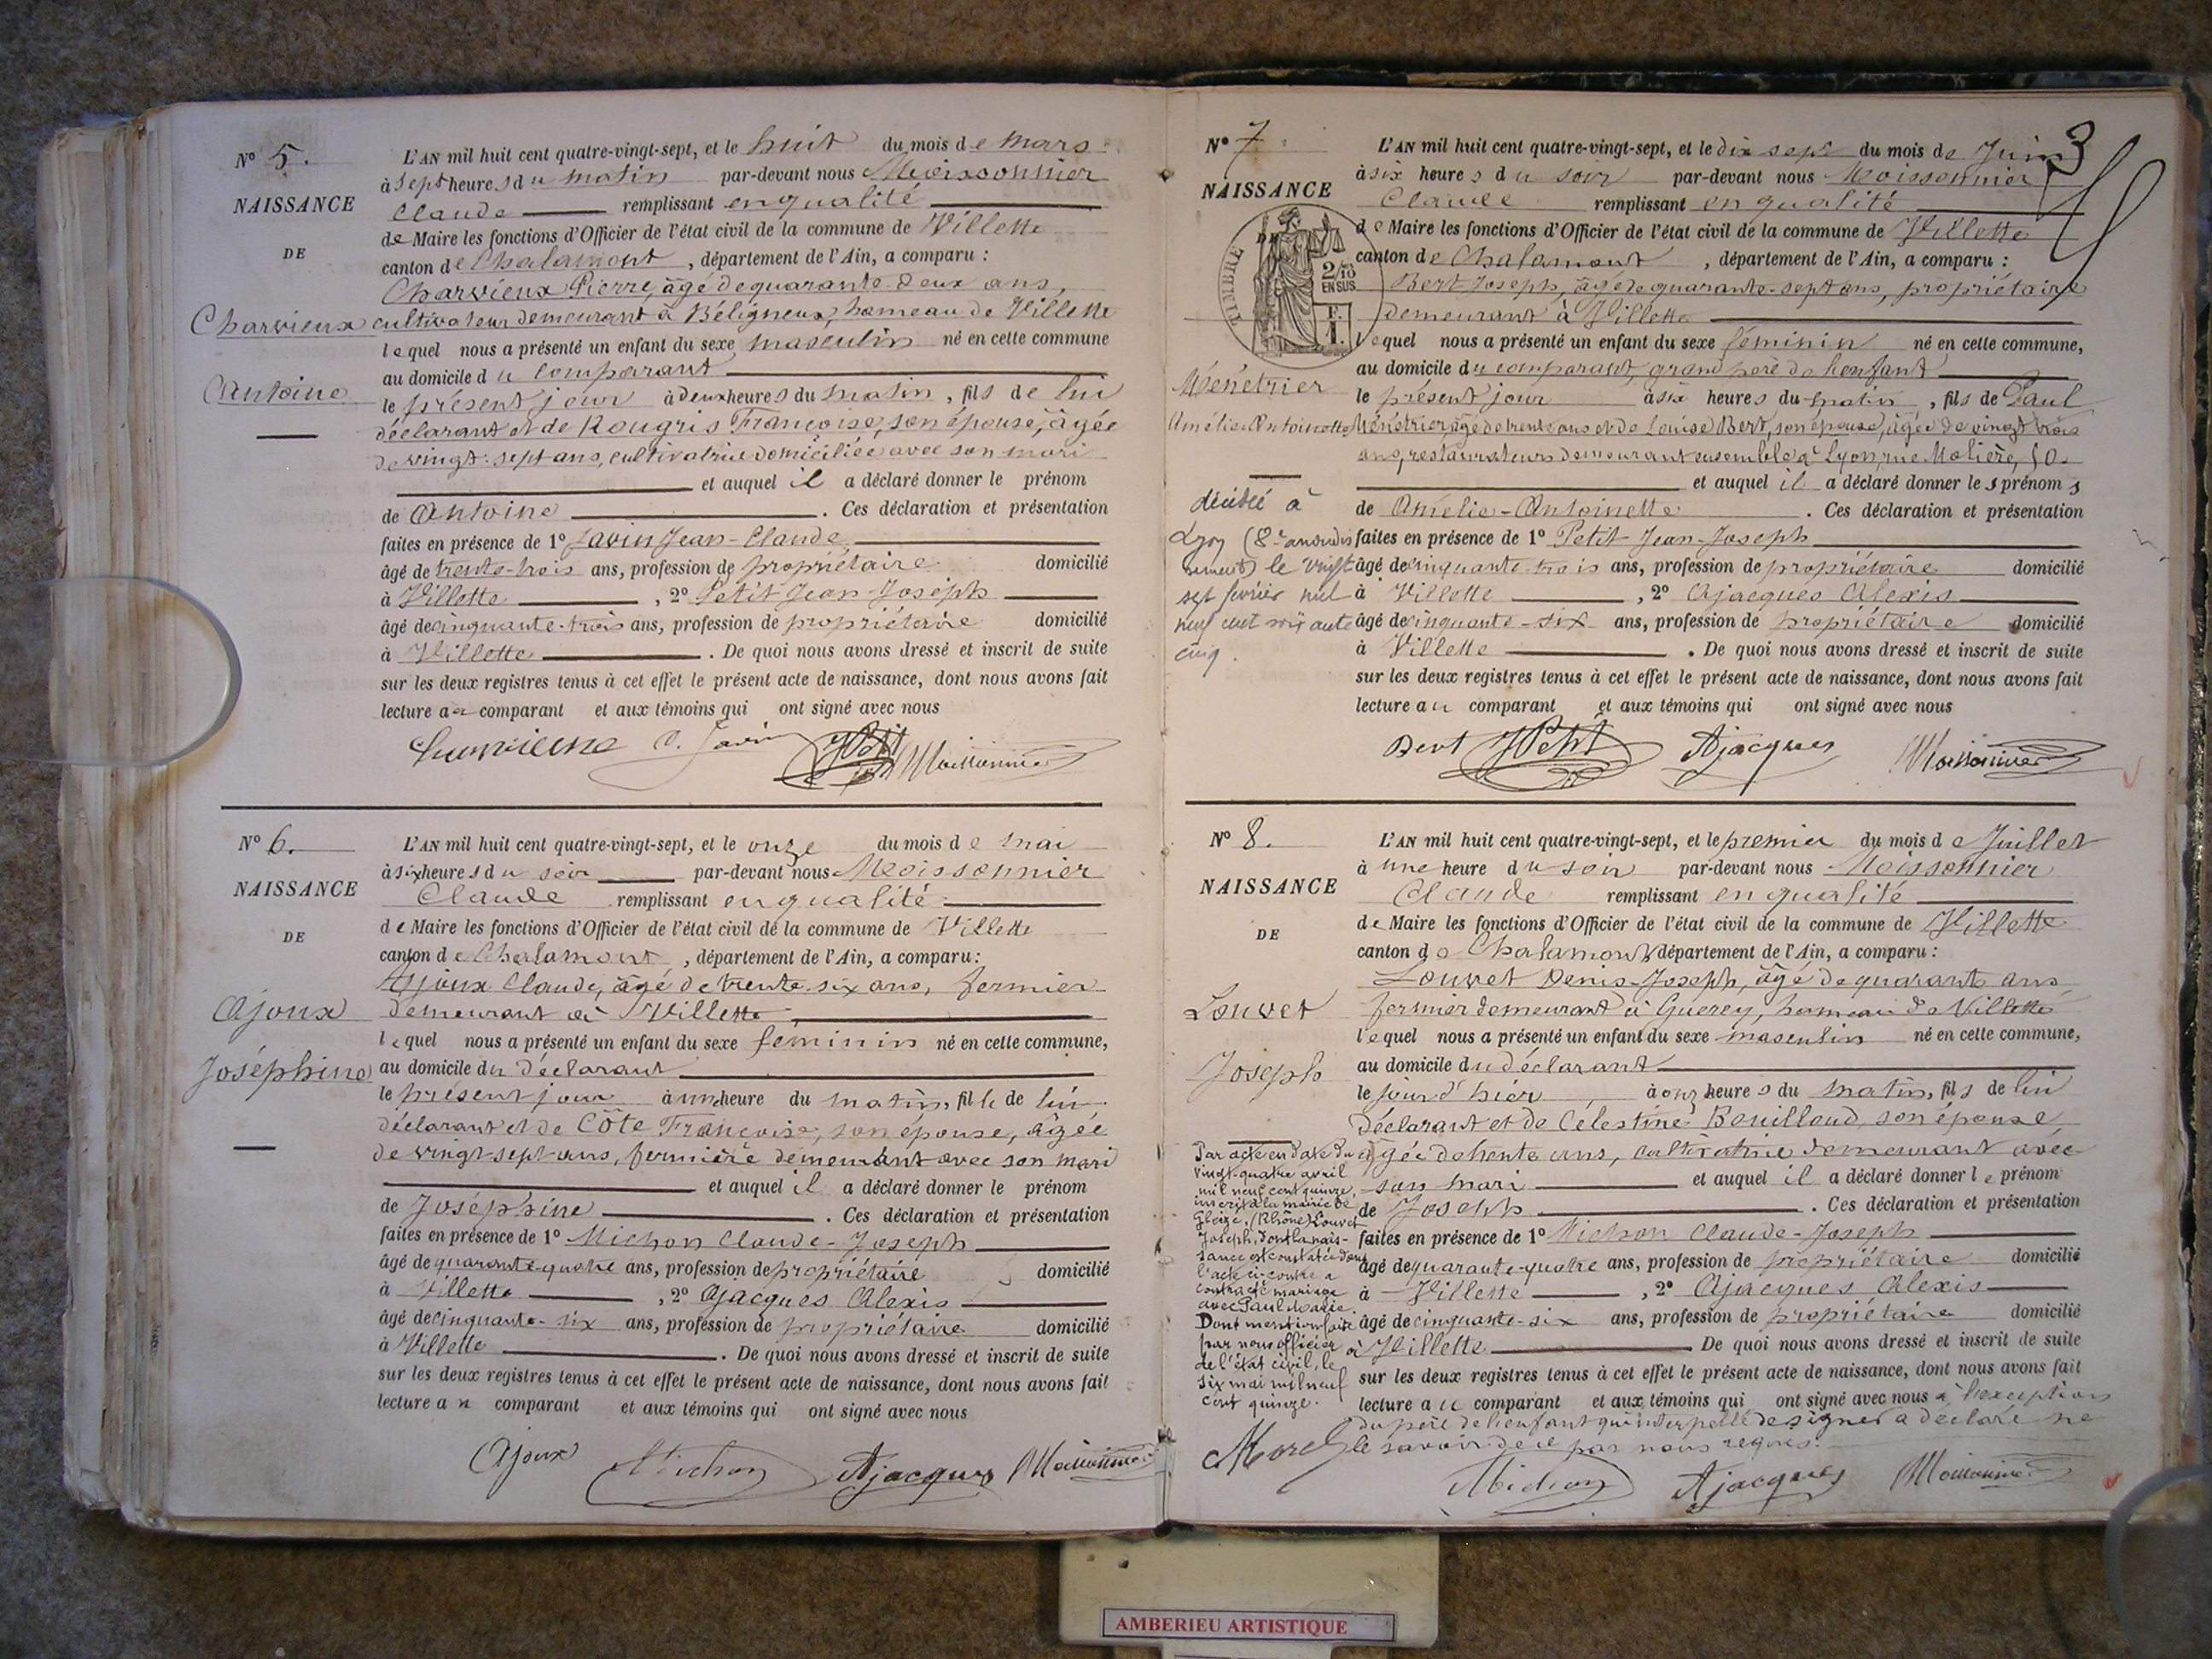 N° 5.
NAISSANCE
DE
Charvieux
Antoine
L'AN mil huit cent quatre-vingt-sept, et le huit du mois de mars
à sept heures du matin par-devant nous Moissonnier
Claude remplissant en qualité
de Maire les fonctions d'Officier de l'état civil de la commune de Villette
canton de Chalamont, département de l'Ain, a comparu :
Charvieux Pierre, âgé de quarante-deux ans,
cultivateur demeurant à Béligneux, hameau de Villette
lequel nous a présenté un enfant du sexe masculin né en cette commune
au domicile du comparant
le présent jour à deux heures du matin, fils de lui
déclarant et de Rougris Françoise, son épouse, âgée
de vingt-sept ans, cultivatrice domiciliée avec son mari
et auquel il a déclaré donner le prénom
de Antoine. Ces déclaration et présentation
faites en présence de 1° Javin Jean-Claude,
âgé de trente-trois ans, profession de propriétaire domicilié
à Villette, 2° Petit Jean-Joseph
âgé de cinquante-trois ans, profession de propriétaire domicilié
à Villette. De quoi nous avons dressé et inscrit de suite
sur les deux registres tenus à cet effet le présent acte de naissance, dont nous avons fait
lecture au comparant et aux témoins qui ont signé avec nous
Charvieux C. Javin JPetit Moissonnier
N° 6.
NAISSANCE
DE
Ajoux
Joséphine
L'AN mil huit cent quatre-vingt-sept, et le onze du mois de mai
à six heures du soir par-devant nous Moissonnier
Claude remplissant en qualité
de Maire les fonctions d'Officier de l'état civil de la commune de Villette
canton de Chalamont, département de l'Ain, a comparu :
Ajoux Claude, âgé de trente-six ans, fermier
demeurant à Villette,
lequel nous a présenté un enfant du sexe feminin né en cette commune,
au domicile du déclarant
le présent jour à une heure du matin, fille de lui
déclarant et de Côte Françoise, son épouse, âgée
de vingt-sept ans, fermière demeurant avec son mari
et auquel il a déclaré donner le prénom
de Joséphine. Ces déclaration et présentation
faites en présence de 1° Michon Claude-Joseph
âgé de quarante-quatre ans, profession de propriétaire domicilié
à Villette, 2° Ajacques Alexis
âgé de cinquante-six ans, profession de propriétaire domicilié
à Villette. De quoi nous avons dressé et inscrit de suite
sur les deux registres tenus à cet effet le présent acte de naissance, dont nous avons fait
lecture au comparant et aux témoins qui ont signé avec nous
Ajoux Michon Ajacques Moissonnier
3
N° 7
NAISSANCE
DE
TIMBRE
2/10
EN SUS
F.
1.
Ménétrier
Amélie Antoinette
décédée à
Lyon (8e arrondis
sement) le vingt
sept février mil
neuf cent soixante
cinq.
L'AN mil huit cent quatre-vingt-sept, et le dix sept du mois de Juin
à six heures du soir par-devant nous Moissonnier
Claude remplissant en qualité
de Maire les fonctions d'Officier de l'état civil de la commune de Villette
canton de Chalamont, département de l'Ain, a comparu :
Bert Joseph, âgé de quarante-sept ans, propriétaire
demeurant à Villette
lequel nous a présenté un enfant du sexe féminin né en cette commune,
au domicile du comparant, grand père de l'enfant
le présent jour à six heures du matin, fils de Paul
Ménétrier, âgé de trente ans et de Louise Bert, son épouse, âgée de vingt trois
ans, restaurateurs demeurant ensemble à Lyon, rue Molière, 50.
et auquel il a déclaré donner les prénoms
de Amélie-Antoinette. Ces déclaration et présentation
faites en présence de 1° Petit Jean-Joseph
âgé de cinquante-trois ans, profession de propriétaire domicilié
à Villette, 2° Ajacques Alexis
âgé de cinquante-six ans, profession de propriétaire domicilié
à Villette. De quoi nous avons dressé et inscrit de suite
sur les deux registres tenus à cet effet le présent acte de naissance, dont nous avons fait
lecture au comparant et aux témoins qui ont signé avec nous
Bert JPetit Ajacques Moissonnier
N° 8.
NAISSANCE
DE
Louvet
Joseph
Par acte en date du
vingt-quatre avril
mil neuf cent quinze,
inscrit à la mairie de
Gleizé, (Rhône) Louvet
Joseph, dont la nais-
sance est constatée dans
l'acte ci-contre a
contracté mariage
avec Paul Marie.
Dont mention faite
par nous officier
de l'état civil, le
six mai mil neuf
cent quinze.
Morel
L'AN mil huit cent quatre-vingt-sept, et le premier du mois de Juillet
à une heure du soir par-devant nous Moissonnier
Claude remplissant en qualité
de Maire les fonctions d'Officier de l'état civil de la commune de Villette
canton de Chalamont, département de l'Ain, a comparu :
Louvet Denis-Joseph, âgé de quarante ans
fermier demeurant à Guerey, hameau de Villette
lequel nous a présenté un enfant du sexe masculin né en cette commune,
au domicile du déclarant
le jour d'hier, à onze heures du matin, fils de lui
déclarant et de Célestine Bouilloud, son épouse,
âgée de trente ans, cultivatrice demeurant avec
son mari et auquel il a déclaré donner le prénom
de Joseph. Ces déclaration et présentation
faites en présence de 1° Michon Claude-Joseph
âgé de quarante-quatre ans, profession de propriétaire domicilié
à Villette, 2° Ajacques Alexis
âgé de cinquante-six ans, profession de propriétaire domicilié
à Villette. De quoi nous avons dressé et inscrit de suite
sur les deux registres tenus à cet effet le présent acte de naissance, dont nous avons fait
lecture au comparant et aux témoins qui ont signé avec nous à l'exception
du père de l'enfant qui interpellé de signer a déclaré ne
le savoir de ce par nous requis.
Michon Ajacques Moissonnier
AMBERIEU ARTISTIQUE